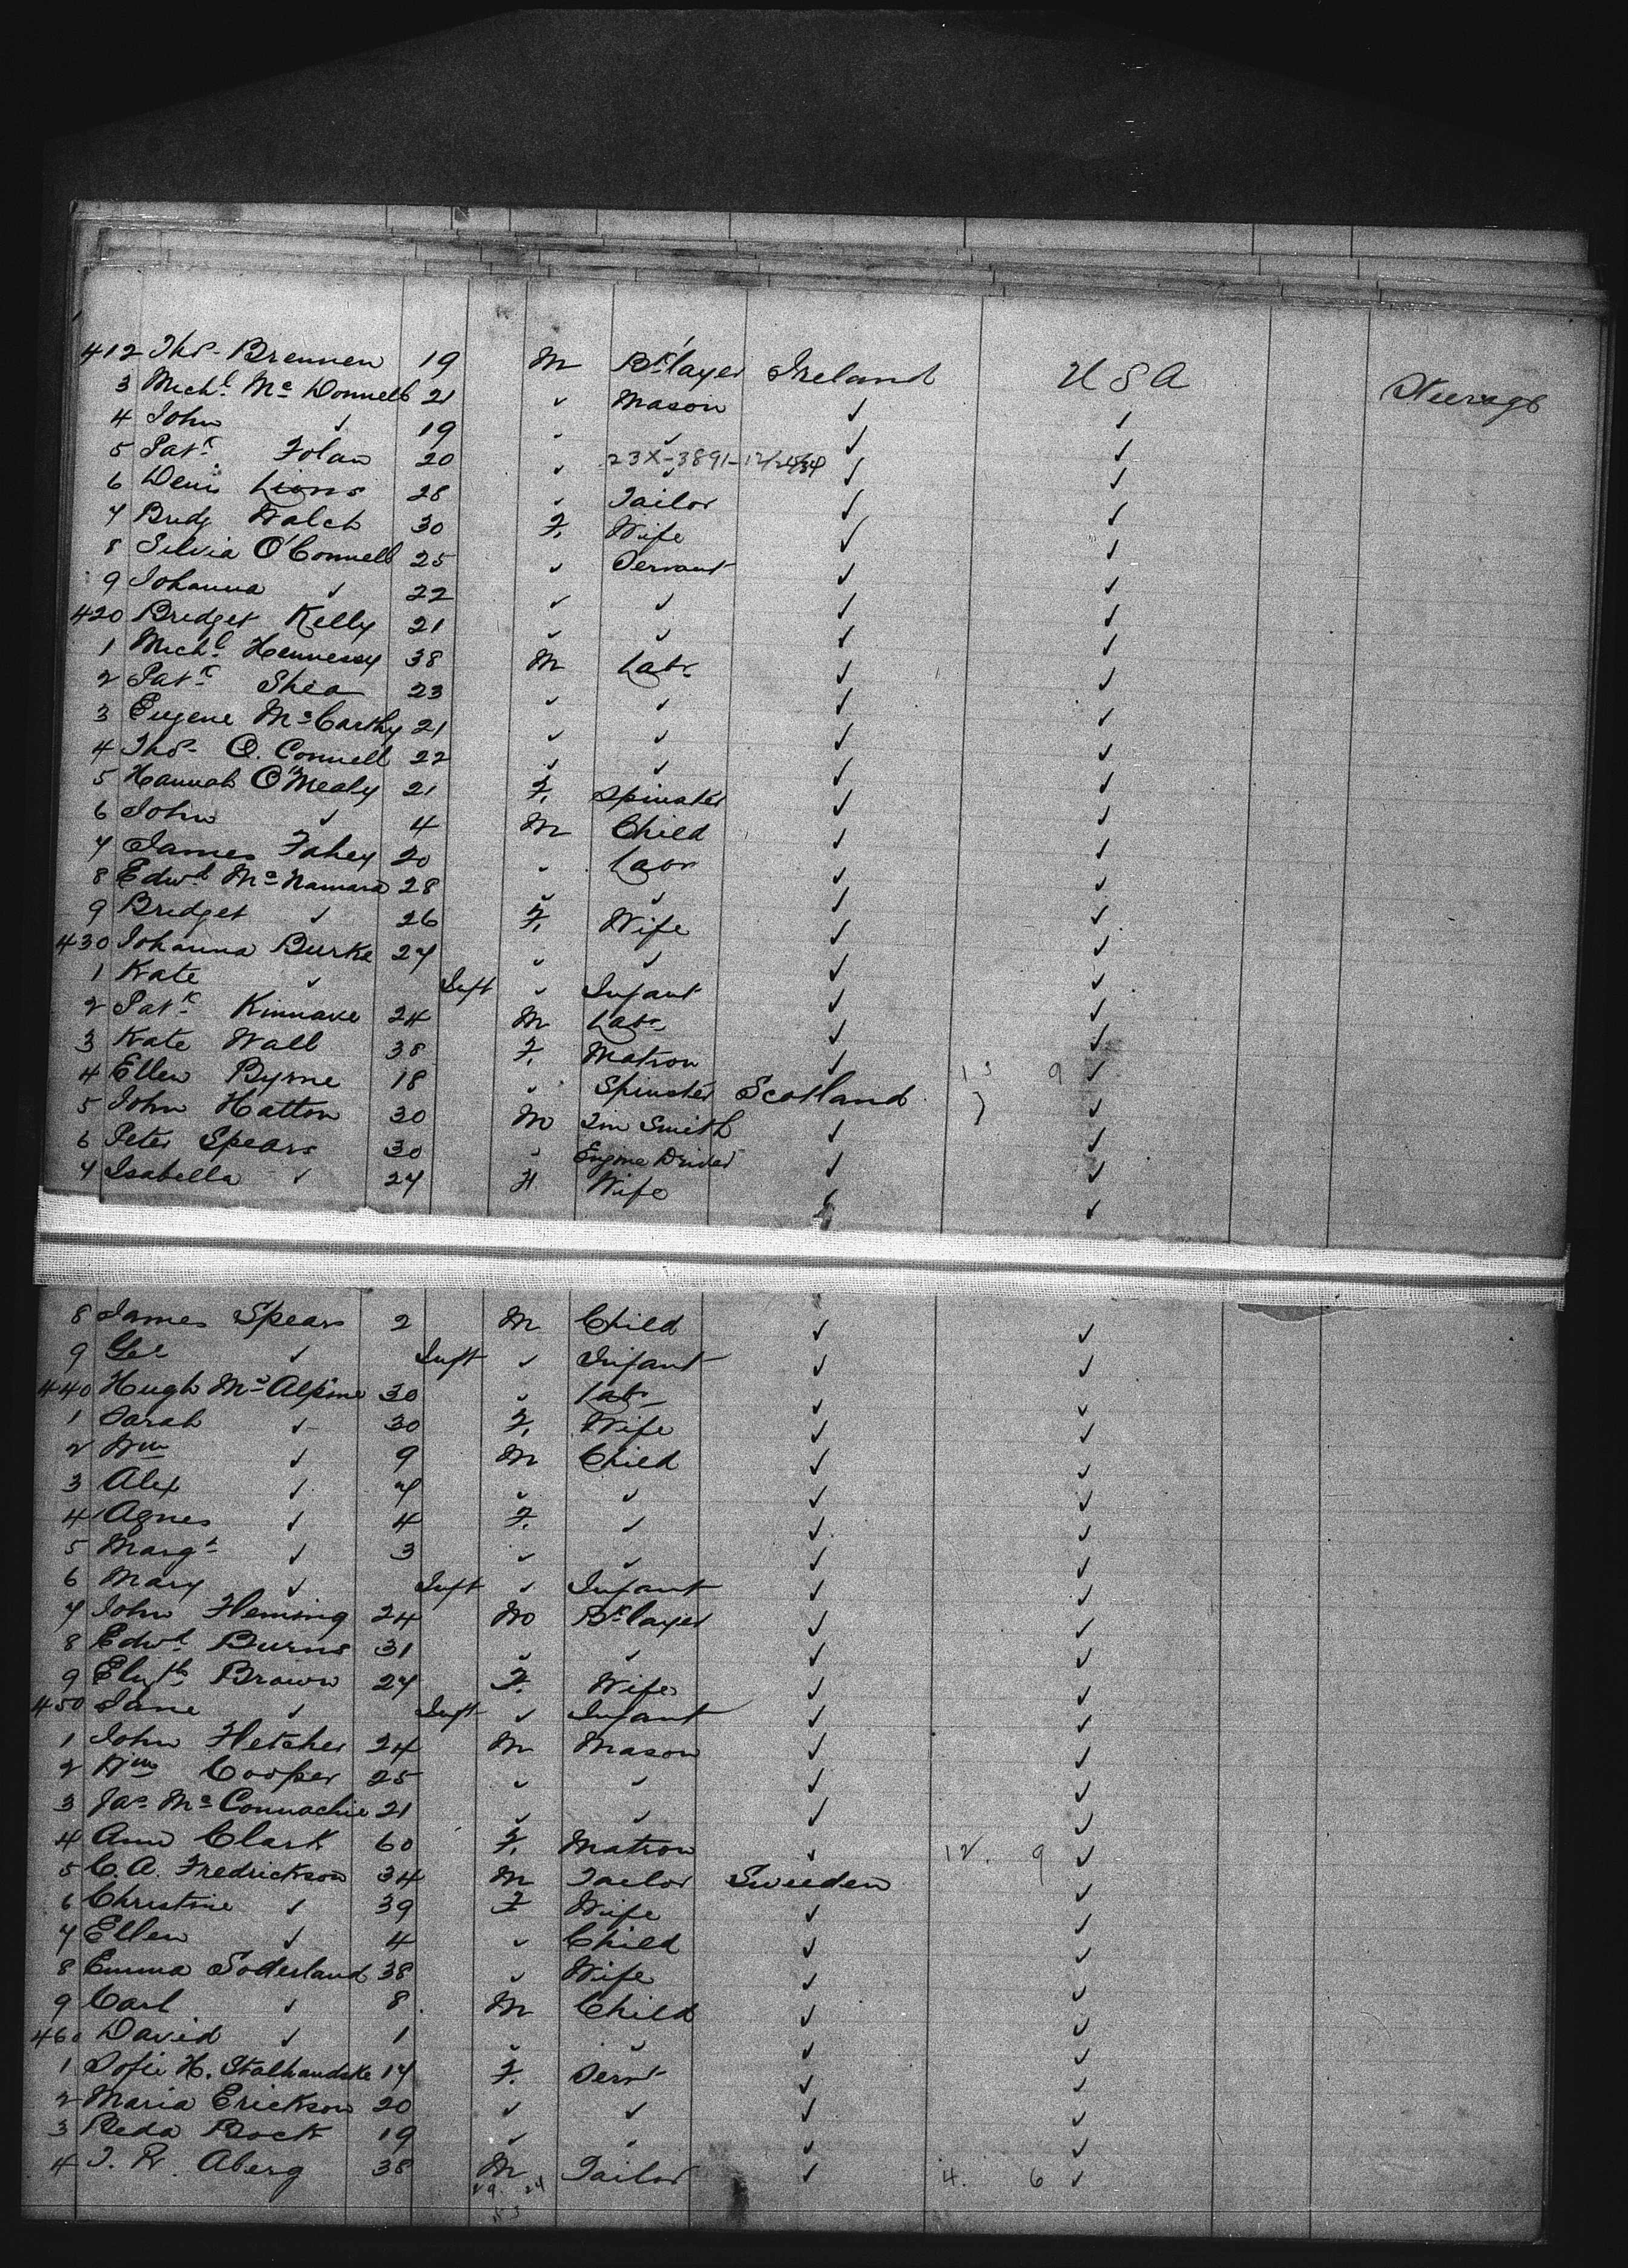 412 Thos. Brennen 19 M Bklayer Ireland USA Steerage
3 Michl. Mc Donnell 21 ✓ Mason ✓ ✓
4 John ✓ 19 ✓ ✓ ✓ ✓
5 Patk. Folan 20 ✓ 23X-3891- ✓ ✓
6 Denis Lions 28 ✓ Tailor ✓ ✓
7 Bridg Walch 30 F. Wife ✓ ✓
8 Silvia O'Connell 25 ✓ Servant ✓ ✓
9 Johanna ✓ 22 ✓ ✓ ✓ ✓
420 Bridget Kelly 21 ✓ ✓ ✓ ✓
1 Michl. Hennessy 38 M Labr. ✓ ✓
2 Patk. Shea 23 ✓ ✓ ✓ ✓
3 Eugene Mc Carthy 21 ✓ ✓ ✓ ✓
4 Thos. O. Connell 22 ✓ ✓ ✓ ✓
5 Hannah O'Mealy 21 F. Spinster ✓ ✓
6 John ✓ 4 M Child ✓ ✓
7 James Fahey 20 ✓ Labr ✓ ✓
8 Edwd. Mc Namara 28 ✓ ✓ ✓ ✓
9 Bridget ✓ 26 F. Wife ✓ ✓
430 Johanna Burke 27 ✓ ✓ ✓ ✓
1 Kate ✓ Inft ✓ Infant ✓ ✓
2 Patk. Kinnave 24 M Labr. ✓ ✓
3 Kate Wall 38 F. Matron ✓ 13 9 ✓
4 Ellen Byrne 18 ✓ Spinster Scotland ✓
5 John Hatton 30 M Tin Smith ✓ ✓
6 Peter Spears 30 ✓ Engine Driver ✓ ✓
7 Isabella ✓ 27 F. Wife ✓ ✓
8 James Spears 2 M Child ✓ ✓
9 Geo ✓ Inft ✓ Infant ✓ ✓
440 Hugh Mc Alpine 30 ✓ Labr. ✓ ✓
1 Sarah ✓ 30 F. Wife ✓ ✓
2 Wm ✓ 9 M Child ✓ ✓
3 Alex ✓ 7 ✓ ✓ ✓ ✓
4 Agnes ✓ 4 F. ✓ ✓ ✓
5 Margt. ✓ 3 ✓ ✓ ✓ ✓
6 Mary ✓ Inft ✓ Infant ✓ ✓
7 John Fleming 24 M Bklayer ✓ ✓
8 Edwd. Burns 31 ✓ ✓ ✓ ✓
9 Elizth. Brown 27 F. Wife ✓ ✓
450 Jane ✓ Inft ✓ Infant ✓ ✓
1 John Fletcher 24 M Mason ✓ ✓
2 Wm Cooper 25 ✓ ✓ ✓ ✓
3 Jas. Mc Connachie 21 ✓ ✓ ✓ ✓
4 Ann Clark 60 F. Matron ✓ 12. 9 ✓
5 C. A. Fredrickson 34 M Tailor Sweden ✓
6 Christine ✓ 39 F Wife ✓ ✓
7 Ellen ✓ 4 ✓ Child ✓ ✓
8 Emma Soderland 38 ✓ Wife ✓ ✓
9 Carl ✓ 8 M Child ✓ ✓
460 David ✓ 1 ✓ ✓ ✓ ✓
1 Sofie H. Stalhandske 17 F. Servt ✓ ✓
2 Maria Erickson 20 ✓ ✓ ✓ ✓
3 Beda Bock 19 ✓ ✓ ✓ ✓
4 J. R. Aberg 38 M Tailor ✓ 4. 6 ✓
29. 24
53